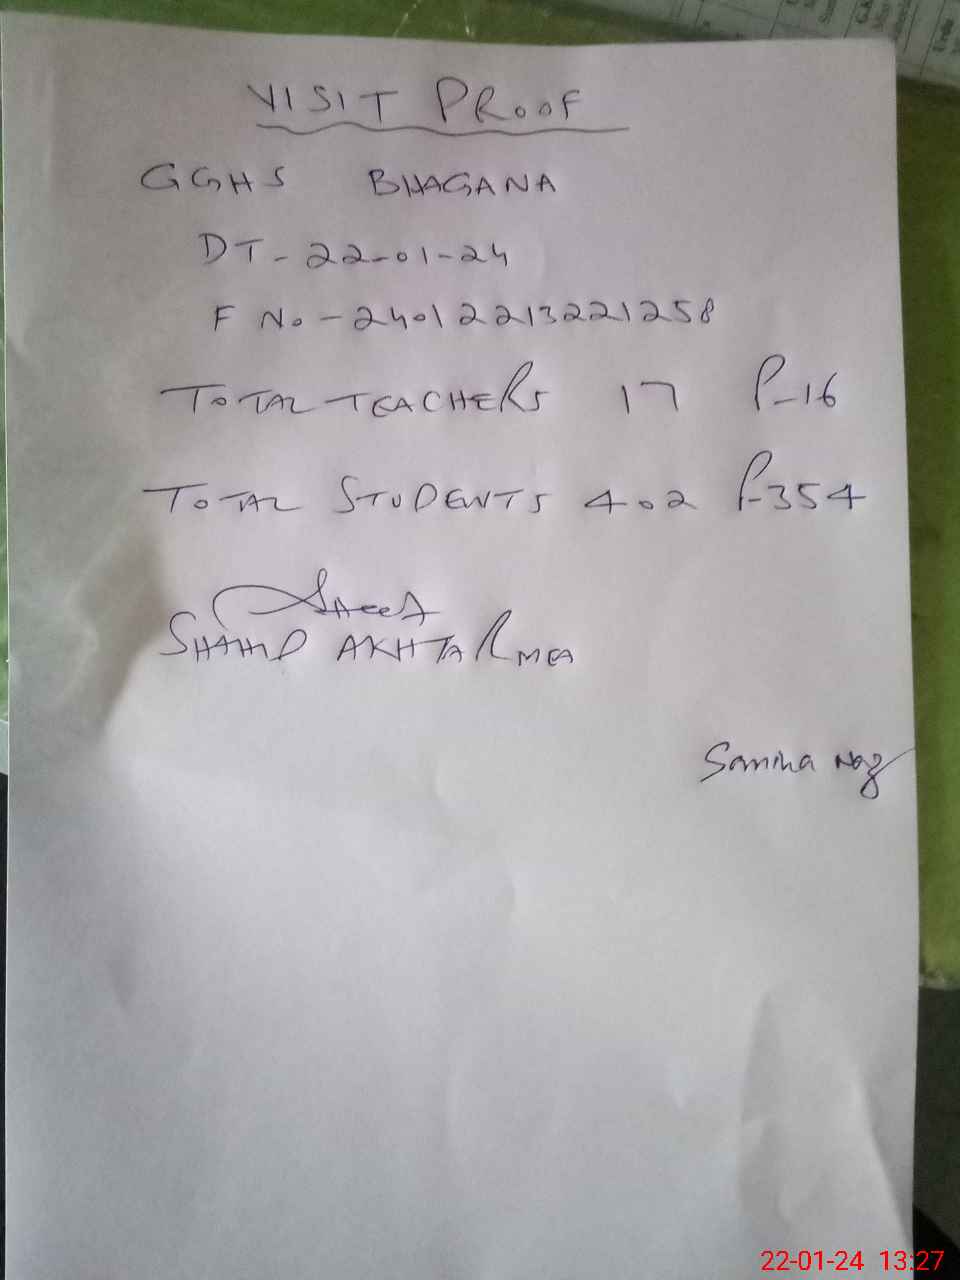 VISIT PROOF
GGHS BHAGANA
DT - 22-01-24
F No - 24012213221258
TOTAL TEACHERS 17 P-16
TOTAL STUDENTS 402 P-354
SHAHID AKHTAR MEA
Samina Naz
22-01-24 13:27